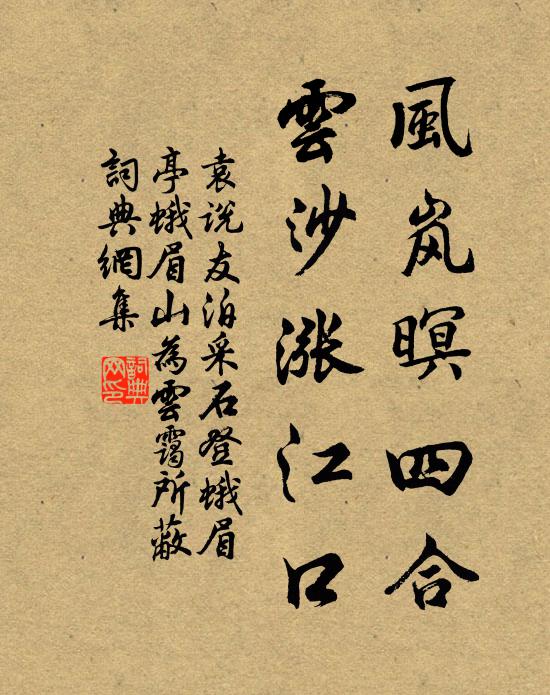 風岚暝四合
雲沙漲江口
袁说友泊采石登蛾眉
亭蛾眉山為雲霭所蔽
詞典網集
詞典
网印